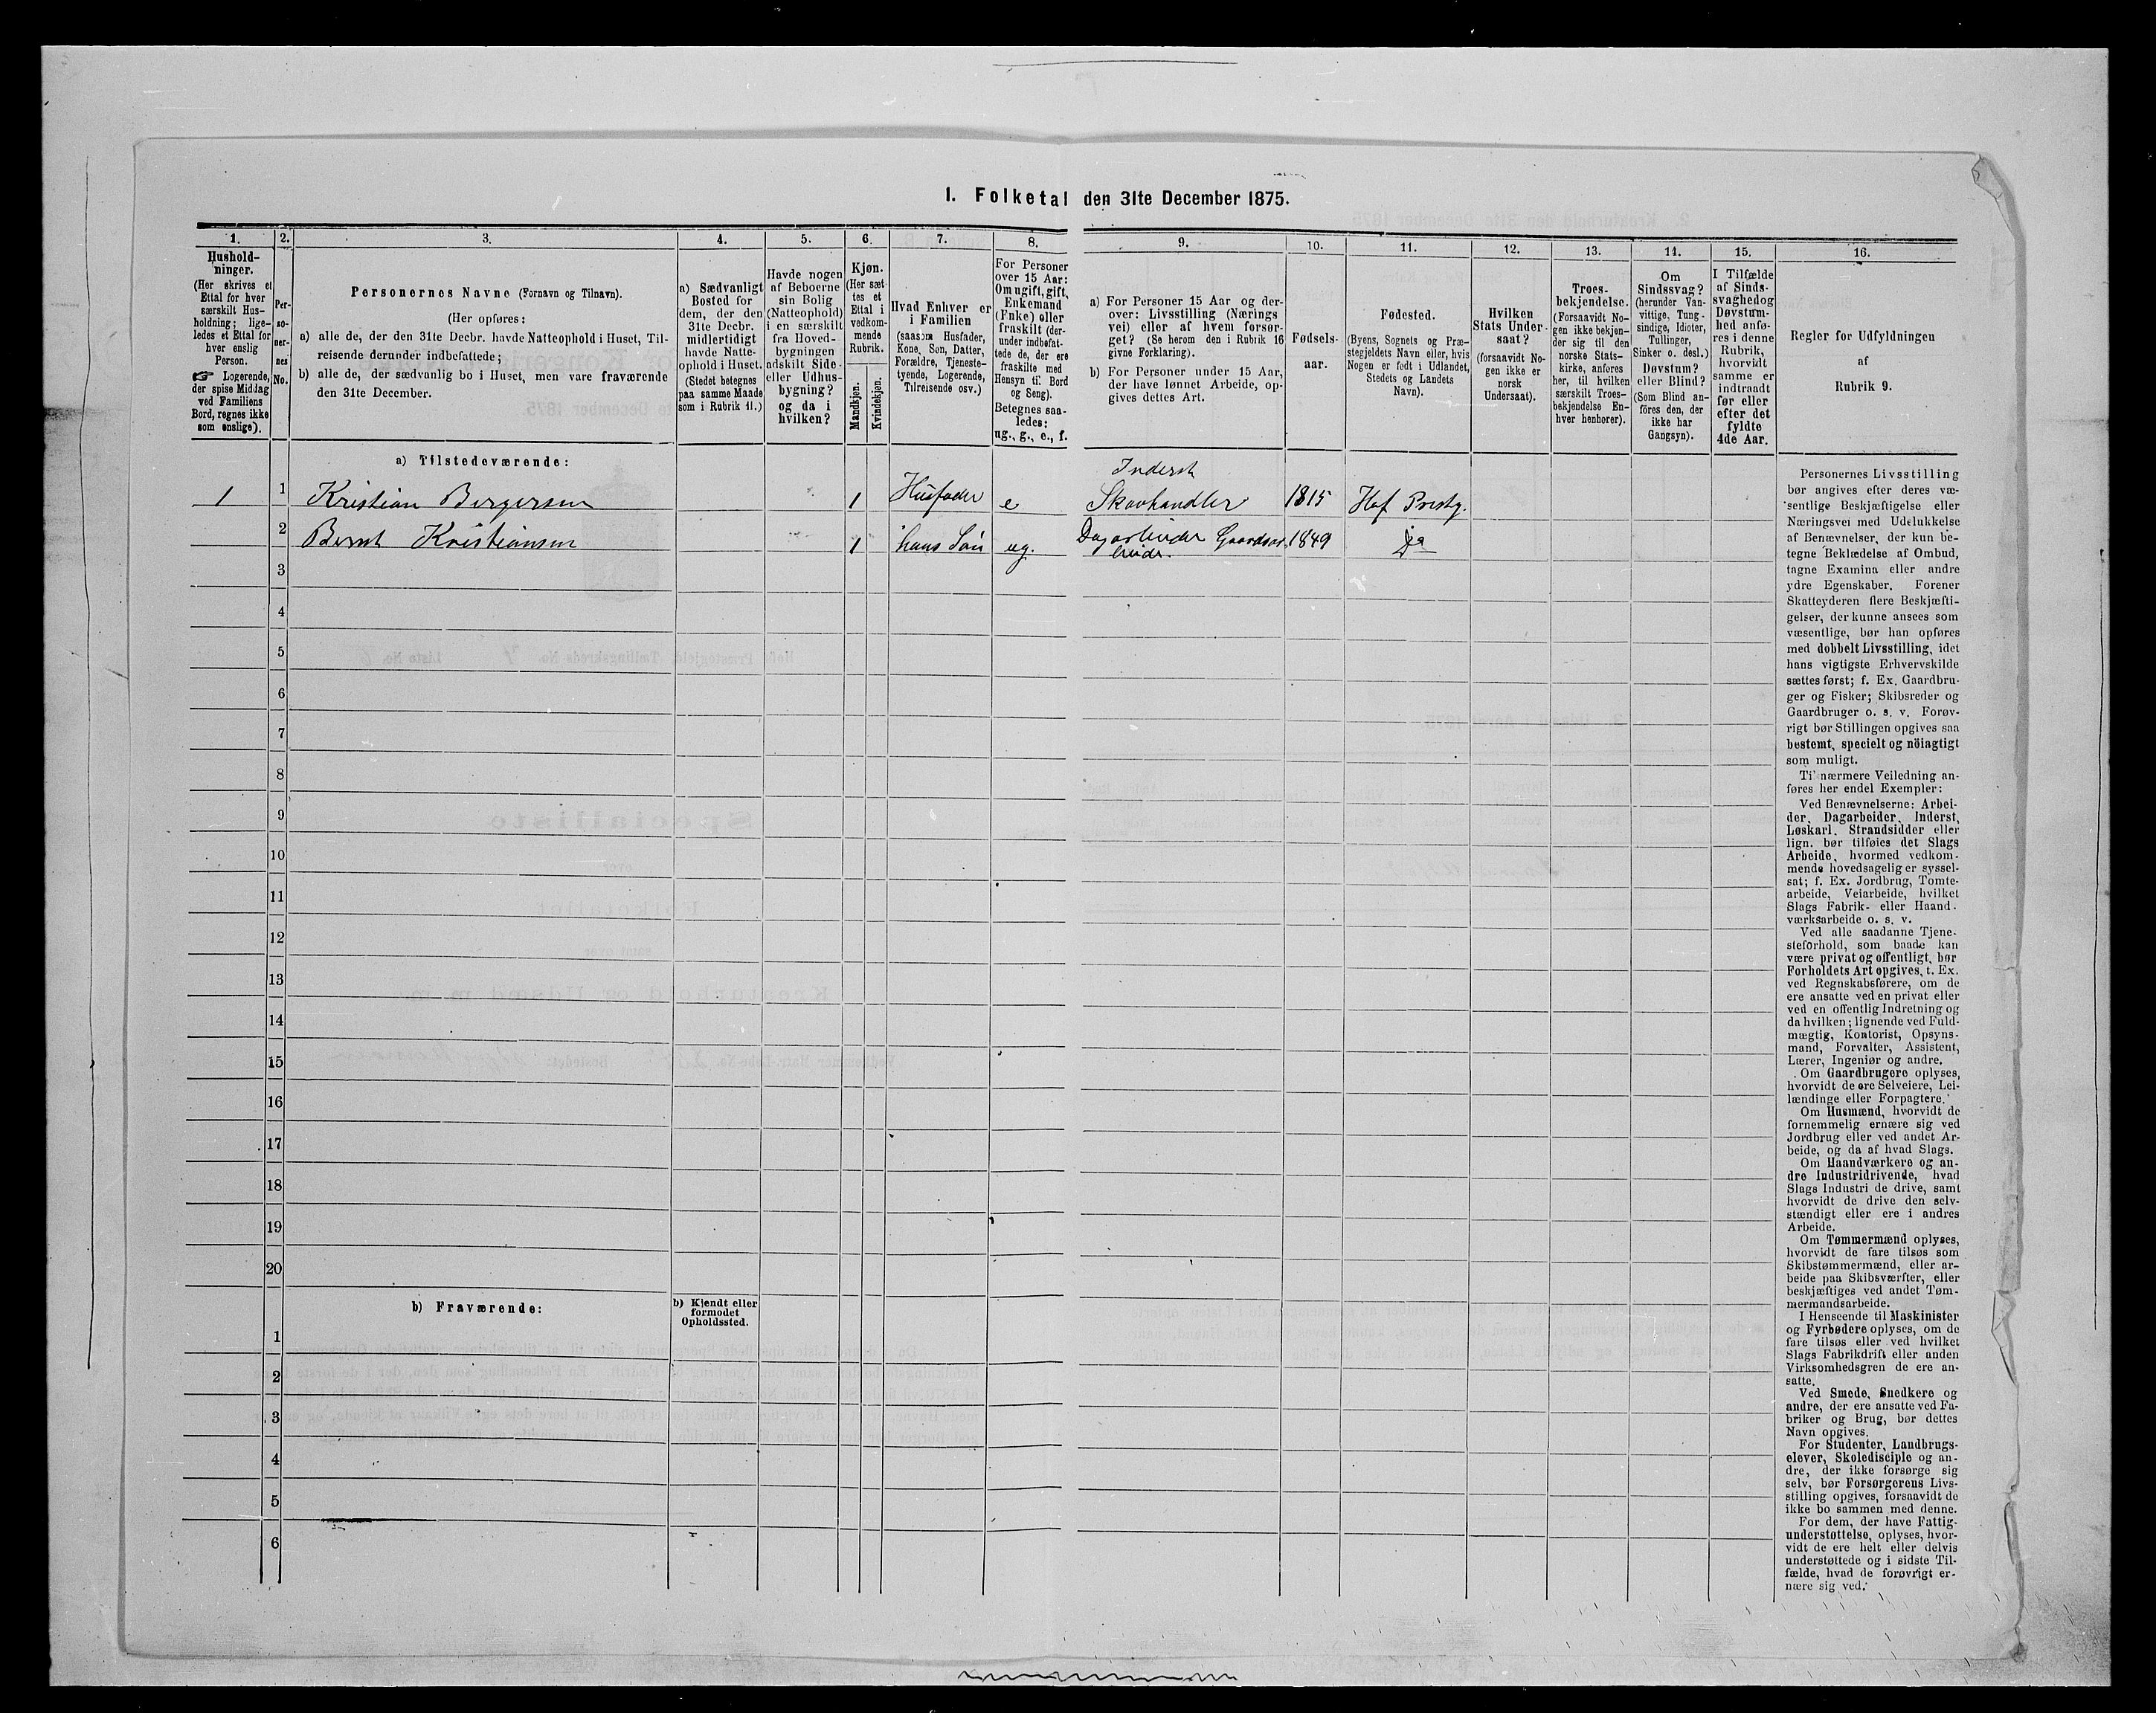 1. Folketal den 31te December 1875.
1.
2.
3.
4.
5.
6.
7.
8.
9.
10.
11.
12.
13.
14.
15.
16.
Hushold-
ninger.
(Her skrives et
Ettal for hver
særskilt Hus-
holdning; lige-
ledes et Ettal for
hver enslig
Person.
☞ Logerende,
der spise Middag
ved Familiens
Bord, regnes ikke
som enslige).
Per-
so-
ner-
nes
No.
Personernes Navne (Fornavn og Tilnavn).
(Her opføres:
a) alle de, der den 31te Decbr. havde Natteophold i Huset, Til-
reisende derunder indbefattede;
b) alle de, der sædvanlig bo i Huset, men vare fraværende
den 31te December.
a) Sædvanligt
Bosted for
dem, der den
31te Decbr.
midlertidigt
havde Natte-
ophold i Huset.
(Stedet betegnes
paa samme Maade
som i Rubrik 11.)
Havde nogen
af Beboerne
sin Bolig
(Natteophold)
i en særskilt
fra Hoved-
bygningen
adskilt Side-
eller Udhus-
bygning?
og da i
hvilken?
Kjøn.
(Her sæt-
tes et
Ettal i
vedkom-
mende
Rubrik.
Mandkjøn.
Kvindekjøn.
Hvad Enhver er
i Familien
(saasom Husfader,
Kone, Søn, Datter,
Forældre, Tjeneste-
tyende, Logerende,
Tilreisende osv.)
For Personer
over 15 Aar:
Om ugift, gift,
Enkemand
(Enke) eller
fraskilt (der-
under indbefat-
tede de, der ere
fraskilte med
Hensyn til Bord
og Seng).
Betegnes saa-
ledes:
ug., g., e., f.
a) For Personer 15 Aar og der-
over: Livsstilling (Nærings
vei) eller af hvem forsør-
get? (Se herom den i Rubrik 16
givne Forklaring).
b) For Personer under 15 Aar,
der have lønnet Arbeide, op-
gives dettes Art.
Fødsels-
aar.
Fødested.
(Byens, Sognets og Præ-
stegjeldets Navn eller, hvis
Nogen er født i Udlandet,
Stedets og Landets
Navn).
Hvilken
Stats Under-
saat?
(forsaavidt No-
gen ikke er
norsk
Undersaat).
Troes-
bekjendelse.
(Forsaavidt No-
gen ikke bekjen-
der sig til den
norske Stats-
kirke, anføres
her, til hvilken
særskilt Troes-
bekjendelse En-
hver henhører).
Om
Sindssvag?
(herunder Van-
vittige, Tung-
sindige, Idioter,
Tullinger,
Sinker o. desl.)
Døvstum?
eller Blind?
(Som Blind an-
føres den, der
ikke har
Gangsyn).
I Tilfælde
af Sinds-
svaghed og
Døvstum-
hed anfø-
res i denne
Rubrik,
hvorvidt
samme er
indtraadt
før eller
efter det
fyldte
4de Aar.
Regler for Udfyldningen
af
Rubrik 9.
a) Tilstedeværende:
Inderst
1 1 Kristian Bergersen 1 Husfader e Skovhandler 1815 Hof Prestg.
2 Bernt Kristiansen 1 hans Søn ug. Dagarbeider Gaardsar- 1849 ja
beide.
3
4
5
6
7
8
9
10
11
12
13
14
15
16
17
18
19
20
b) Fraværende:
b) Kjendt eller
formodet
Opholdssted.
1
2
3
4
5
6
Personernes Livsstilling
bør angives efter deres væ-
sentlige Beskjæftigelse eller
Næringsvei med Udelukkelse
af Benævnelser, der kun be-
tegne Beklædelse af Ombud,
tagne Examina eller andre
ydre Egenskaber. Forener
Skatteyderen flere Beskjæfti-
gelser, der kunne ansees som
væsentlige, bør han opføres
med dobbelt Livsstilling, idet
hans vigtigste Erhvervskilde
sættes først; f. Ex. Gaardbru-
ger og Fisker; Skibsreder og
Gaardbruger o. s. v. Forøv-
rigt bør Stillingen opgives saa
bestemt, specielt og nöiagtigt
som muligt.
Til nærmere Veiledning an-
føres her endel Exempler:
Ved Benævnelserne: Arbei-
der, Dagarbeider, Inderst,
Løskarl, Strandsidder eller
lign. bør tilføies det Slags
Arbeide, hvormed vedkom-
mende hovedsagelig er syssel-
sat; f. Ex. Jordbrug, Tomte-
arbeide, Veiarbeide, hvilket
Slags Fabrik- eller Haand-
værksarbeide o. s. v.
Ved alle saadanne Tjene-
steforhold, som baade kan
være privat og offentligt, bør
Forholdets Art opgives, t. Ex.
ved Regnskabsførere, om de
ere ansatte ved en privat eller
ved en offentlig Indretning og
da hvilken; lignende ved Fuld-
mægtig, Kontorist, Opsyns-
mand, Forvalter, Assistent,
Lærer, Ingeniør og andre.
Om Gaardbrugere oplyses,
hvorvidt de ere Selveiere, Lei-
lændinge eller Forpagtere.
Om Husmænd, hvorvidt de
fornemmelig ernære sig ved
Jordbrug eller ved andet Ar-
beide, og da af hvad Slags.
Om Haandværkere og an-
dre Industridrivende, hvad
Slags Industri de drive, samt
hvorvidt de drive den selv-
stændigt eller ere i andres
Arbeide.
Om Tømmermænd oplyses,
hvorvidt de fare tilsøs som
Skibstømmermænd, eller ar-
beide paa Skibsværfter, eller
beskjæftiges ved andet Tøm-
mermandsarbeide.
I Henseende til Maskinister
og Fyrbødere oplyses, om de
fare tilsøs eller ved hvilket
Slags Fabrikdrift eller anden
Virksomhedsgren de ere an-
satte.
Ved Smede, Snedkere og
andre, der ere ansatte ved Fa-
briker og Brug, bør dettes
Navn opgives.
For Studenter, Landbrugs-
elever, Skoledisciple og an-
dre, der ikke forsørge sig
selv, bør Forsørgerens Livs-
stilling opgives, forsaavidt de
ikke bo sammen med denne.
For dem, der have Fattig-
understøttelse, oplyses, hvor-
vidt de ere helt eller delvis
understøttede og i sidste Til-
fælde, hvad de forøvrigt er-
nære sig ved.